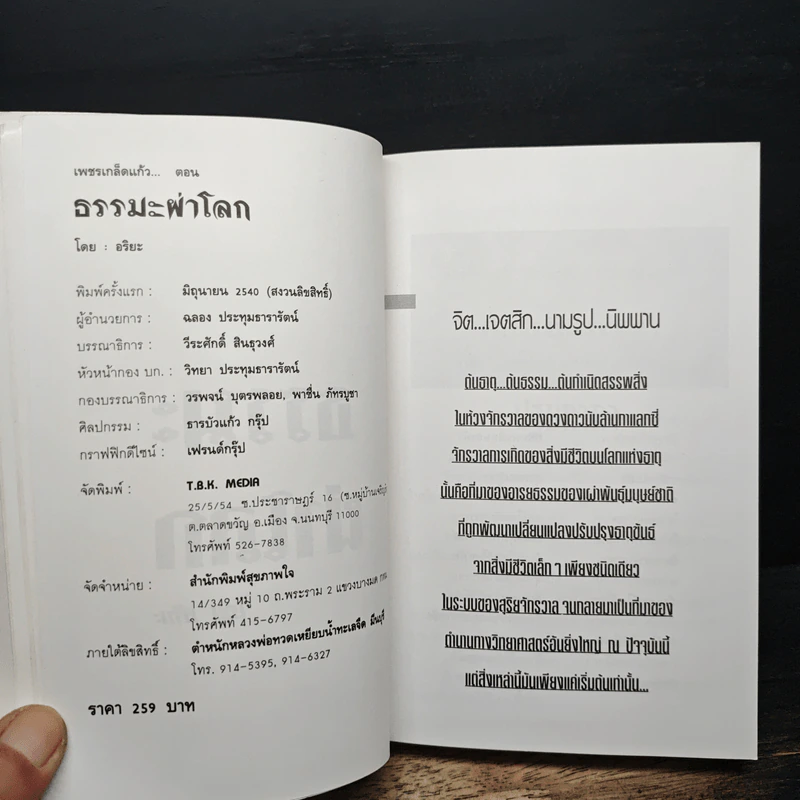 เพชรเกล็ดแก้ว... ตอน
ธรรมะฝ่าโลก
โดย : อริยะ
พิมพ์ครั้งแรก : มิถุนายน 2540 (สงวนลิขสิทธิ์)
ผู้อำนวยการ : ฉลอง ประทุมธารารัตน์
บรรณาธิการ : วีระศักดิ์ สินธุวงศ์
หัวหน้ากอง บก. : วิทยา ประทุมธารารัตน์
กองบรรณาธิการ : วรพจน์ บุตรพลอย, พาชื่น ภัทรบูชา
ศิลปกรรม : ธารบัวแก้ว กรุ๊ป
กราฟฟิกดีไซน์ : เฟรนด์กรุ๊ป
จัดพิมพ์ : T.B.K. MEDIA
25/5/54 ซ.ประชาราษฎร์ 16 (ซ.หมู่บ้าน
ต.ตลาดขวัญ อ.เมือง จ.นนทบุรี 11000
โทรศัพท์ 526-7838
จัดจำหน่าย : สำนักพิมพ์สุขภาพใจ
14/349 หมู่ 10 ถ.พระราม 2 แขวงบางมด
โทรศัพท์ 415-6797
ภายใต้ลิขสิทธิ์ : ตำหนักหลวงพ่อทวดเหยียบน้ำทะเลจืด มีนบุรี
โทร. 914-5395, 914-6327
ราคา 259 บาท
จิต...เจตสิก...นามรูป...นิพพาน
ต้นธาตุ...ต้นธรรม...ต้นกำเนิดสรรพสิ่ง
ในห้วงจักรวาลของดวงดาวนับล้านกาแลกซี่
จักรวาลการเกิดของสิ่งมีชีวิตบนโลกแห่งธาตุ
นั้นคือที่มาของอารยธรรมของเผ่าพันธุ์มนุษย์ชาติ
ที่ถูกพัฒนาเปลี่ยนแปลงปรับปรุงธาตุขันธ์
จากสิ่งมีชีวิตเล็ก ๆ เพียงชนิดเดียว
ในระบบของสุริยจักรวาล จนกลายมาเป็นที่มาของ
ตำนานทางวิทยาศาสตร์อันยิ่งใหญ่ ณ ปัจจุบันนี้
แต่สิ่งเหล่านี้มันเพียงแค่เริ่มต้นเท่านั้น...